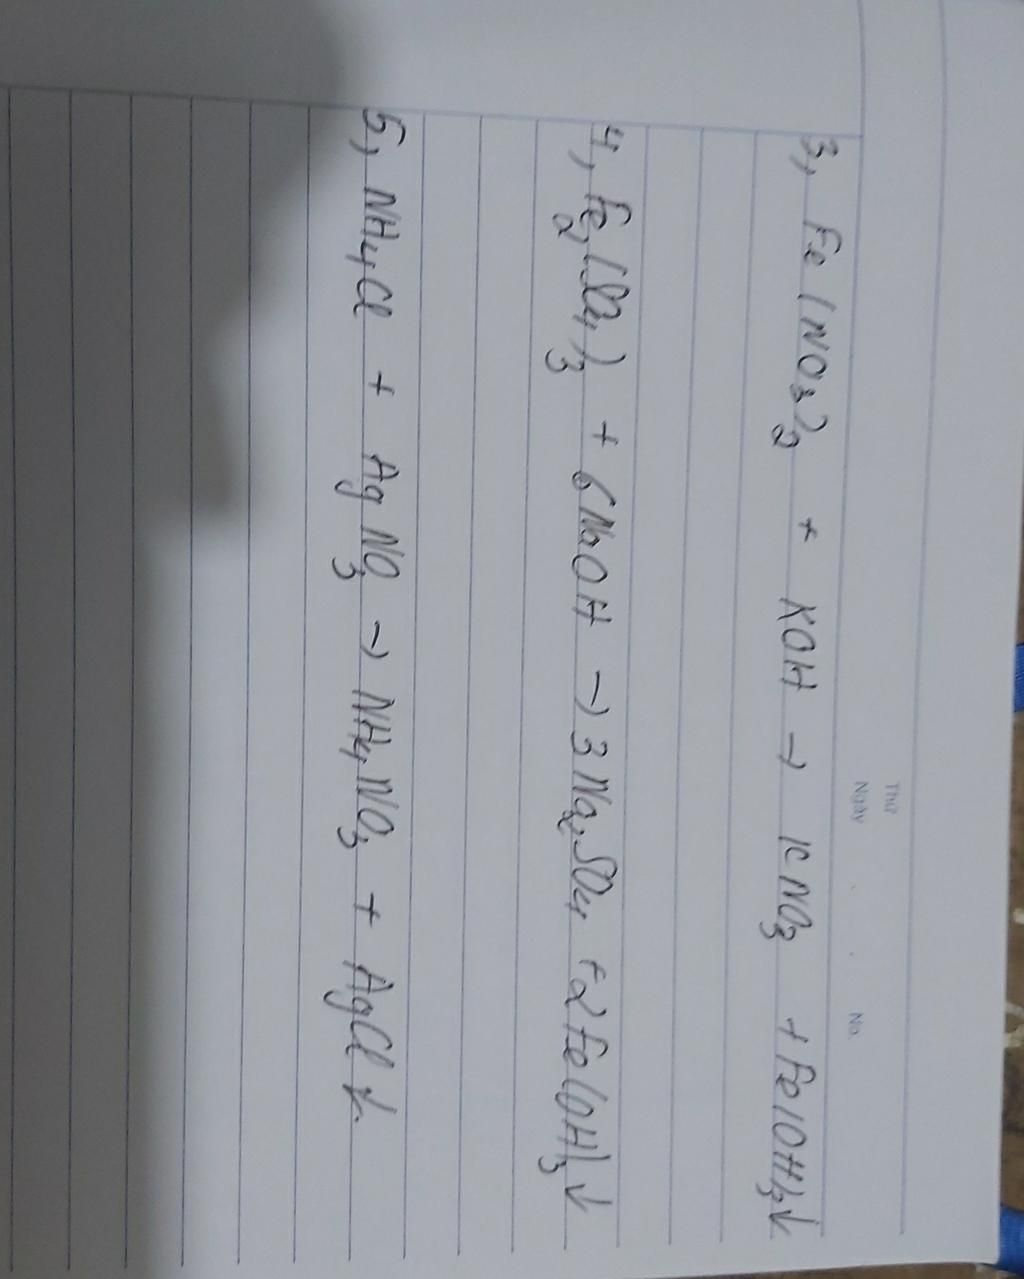 Thứ
Ngày . . No.
3, Fe(NO₃)₂ + KOH → KNO₃ + Fe(OH)₂↓
4, Fe₂(SO₄)₃ + 6NaOH → 3Na₂SO₄ + 2Fe(OH)₃↓
5, NH₄Cl + AgNO₃ → NH₄NO₃ + AgCl↓.